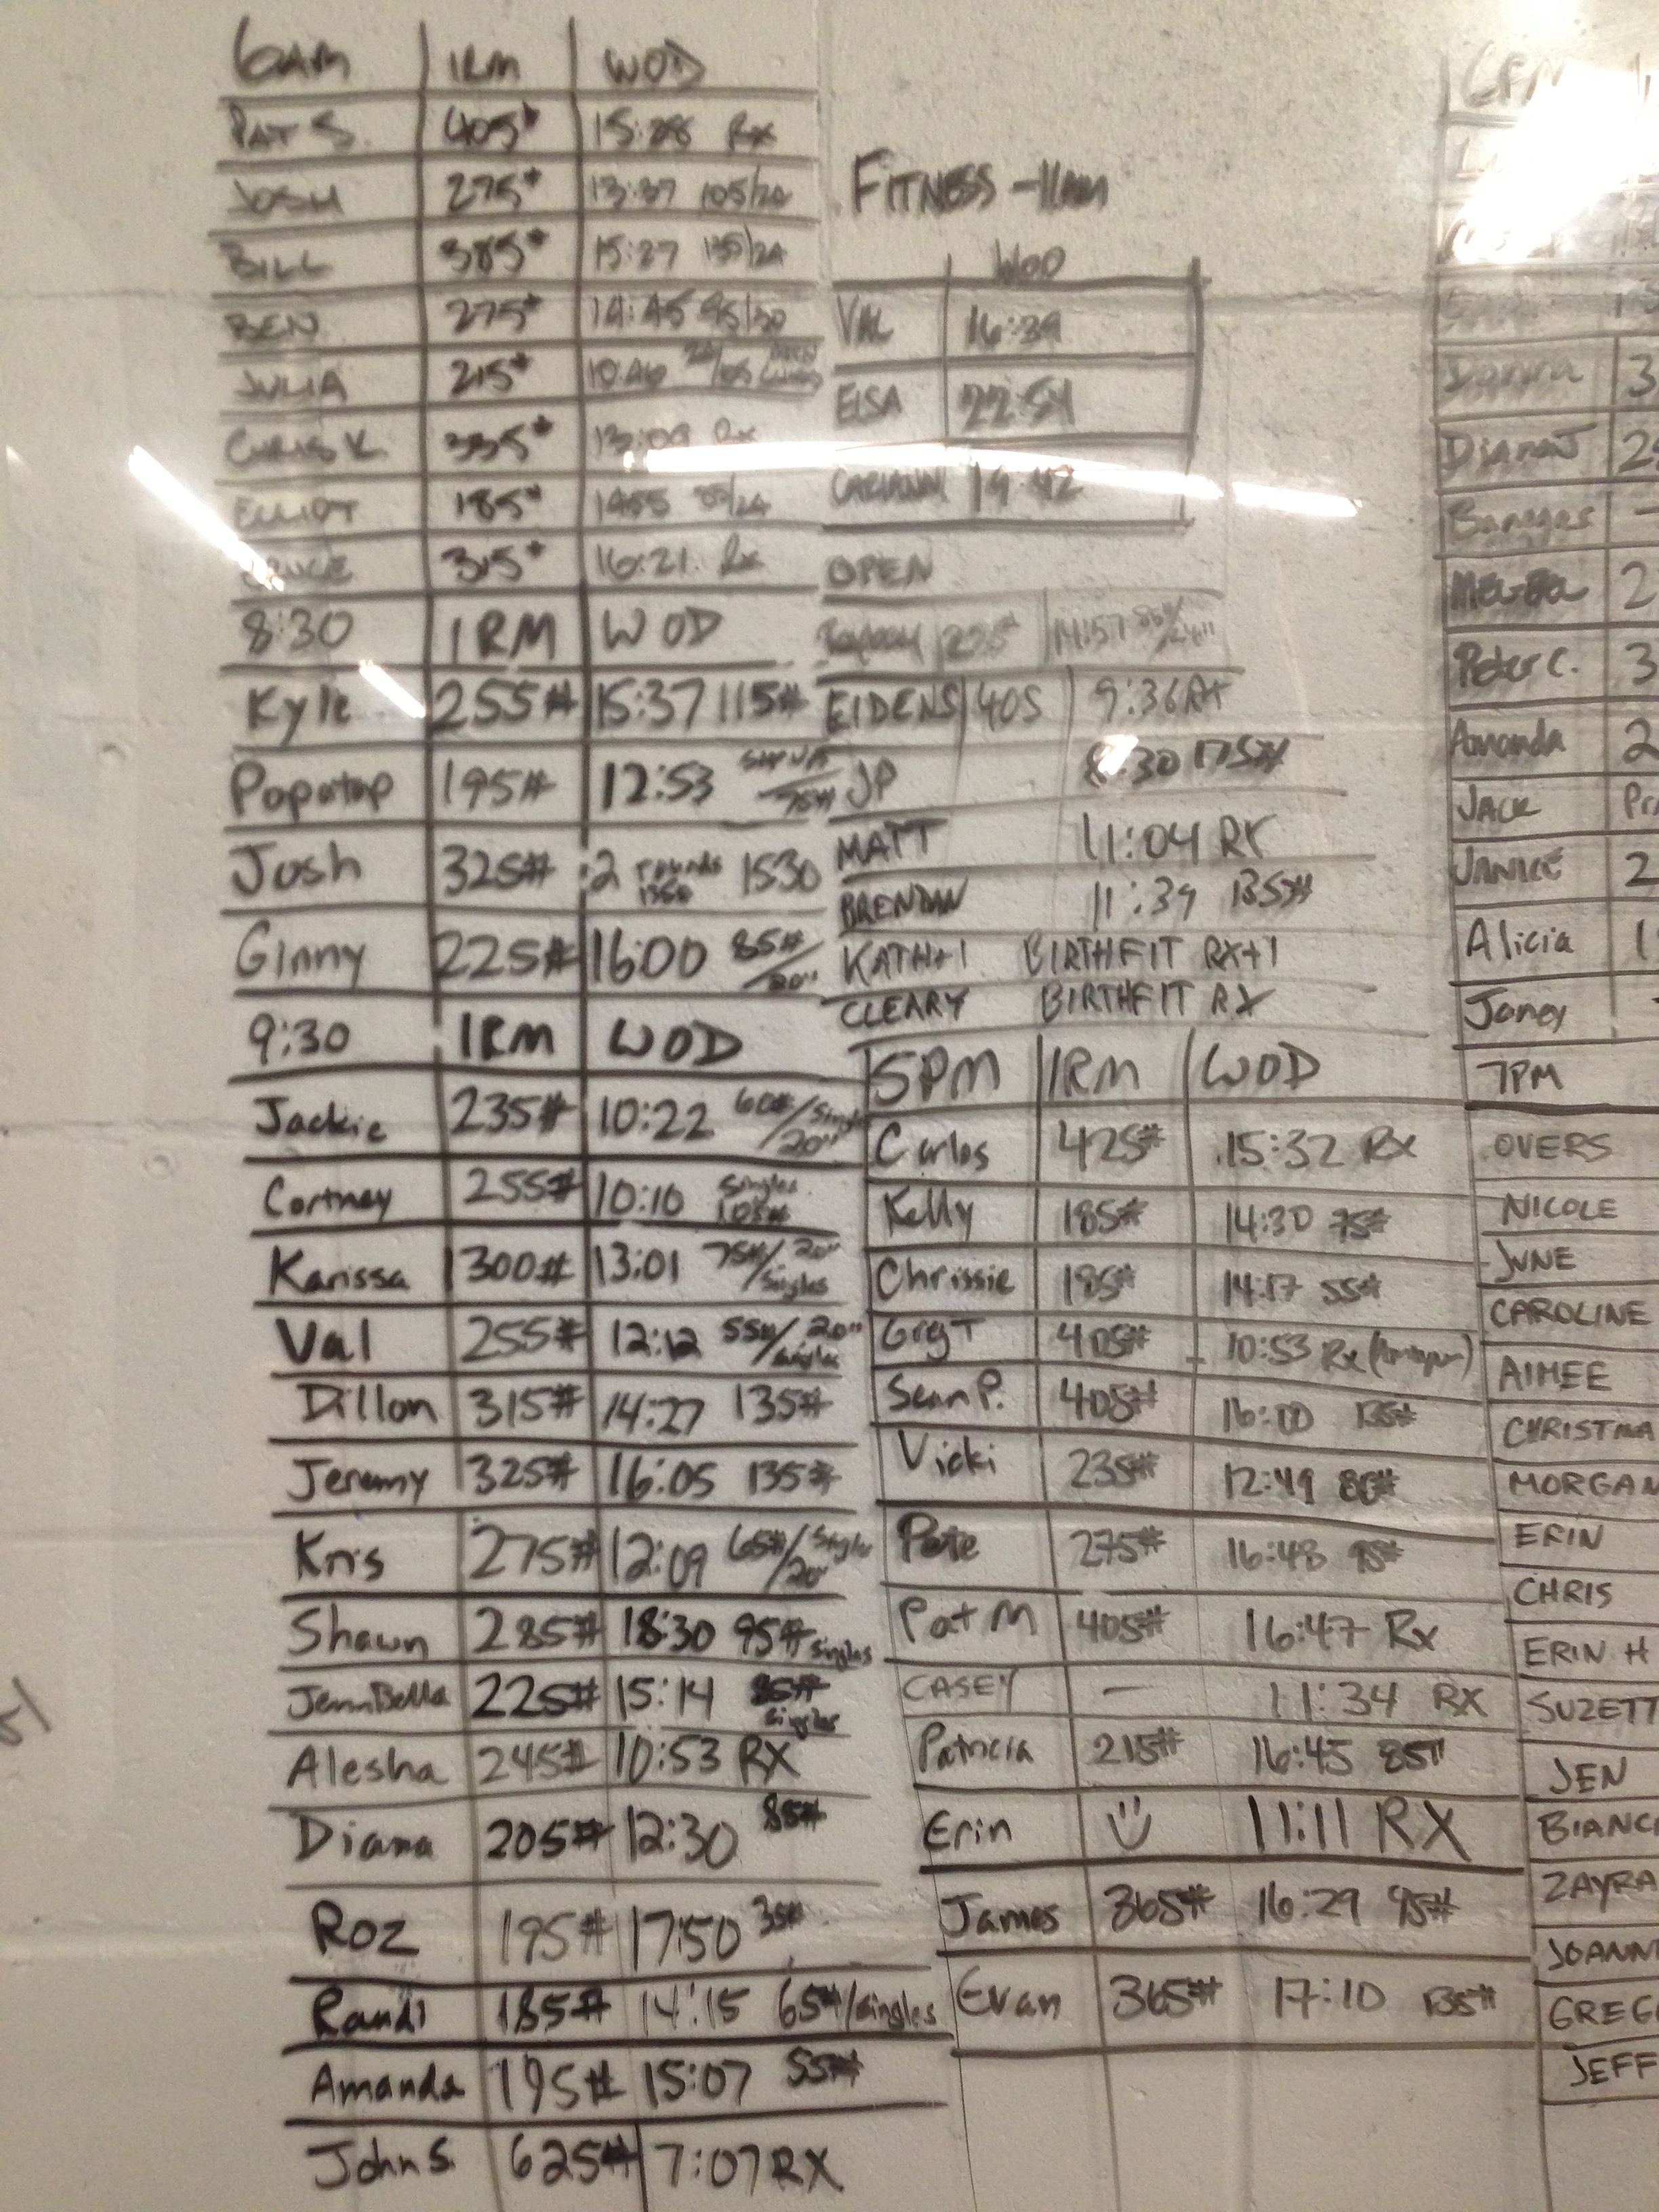 6AM 1RM WOD
PAT S. 405# 15:28 Rx
JOSH 275# 13:37 105/20
BILL 385# 15:27 135/24
BEN 275# 14:45 95/20
JULIA 215# 10:46
CHRIS K. 335# 13:09 Rx
ELLIOT 185# 1455
315# 16:21 Rx
8:30 1RM WOD
Kyle 255# 15:37 115#
Popotop 195# 12:53
Josh 325# 2 rounds 1530
Ginny 225# 16:00 85#/20"
9:30 1RM WOD
Jackie 235# 10:22 60#/Singles 20"
Cortney 255# 10:10 Singles 105#
Karissa 300# 13:01 75#/20" Singles
Val 255# 12:12 55#/20" Singles
Dillon 315# 14:27 135#
Jeremy 325# 16:05 135#
Kris 275# 12:09 65#/Singles 20"
Shawn 285# 18:30 95# singles
JennBella 225# 15:14 85# singles
Alesha 245# 10:53 RX
Diana 205# 12:30 85#
Roz 195# 17:50 35#
Randi 185# 14:15 65#/singles
Amanda 195# 15:07 55#
John S. 625# 7:07 RX
FITNESS - 11am
WOD
VAL 16:39
ELSA 22:54
CARIANN 19:42
OPEN
225# 14:57
EIDENS 405 9:36 RX
JP 8:30 175#
MATT 11:04 RX
BRENDAN 11:39 135#
KATH+1 BIRTHFIT RX+1
CLEARY BIRTHFIT RX
5PM 1RM WOD
Carlos 425# 15:32 Rx
Kelly 185# 14:30 75#
Chrissie 185# 14:17 55#
Greg T 405# 10:53 Rx
Sean P. 405# 16:00 135#
Vicki 235# 12:49 80#
Pete 275# 16:48 95#
Pat M 405# 16:47 Rx
CASEY — 11:34 RX
Patricia 215# 16:45 85#
Erin 11:11 RX
James 365# 16:29 95#
Evan 365# 17:10 135#
6PM
Donna 3
Diana J 2
Banegas -
Melissa 2
Peter C. 3
Amanda 2
JACK Pr
JANICE 2
Alicia 1
Janey
7PM
OVERS
NICOLE
JUNE
CAROLINE
AIMEE
CHRISTINA
MORGAN
ERIN
CHRIS
ERIN H
SUZETT
JEN
BIANC
ZAYRA
JOANN
GREG
JEFF